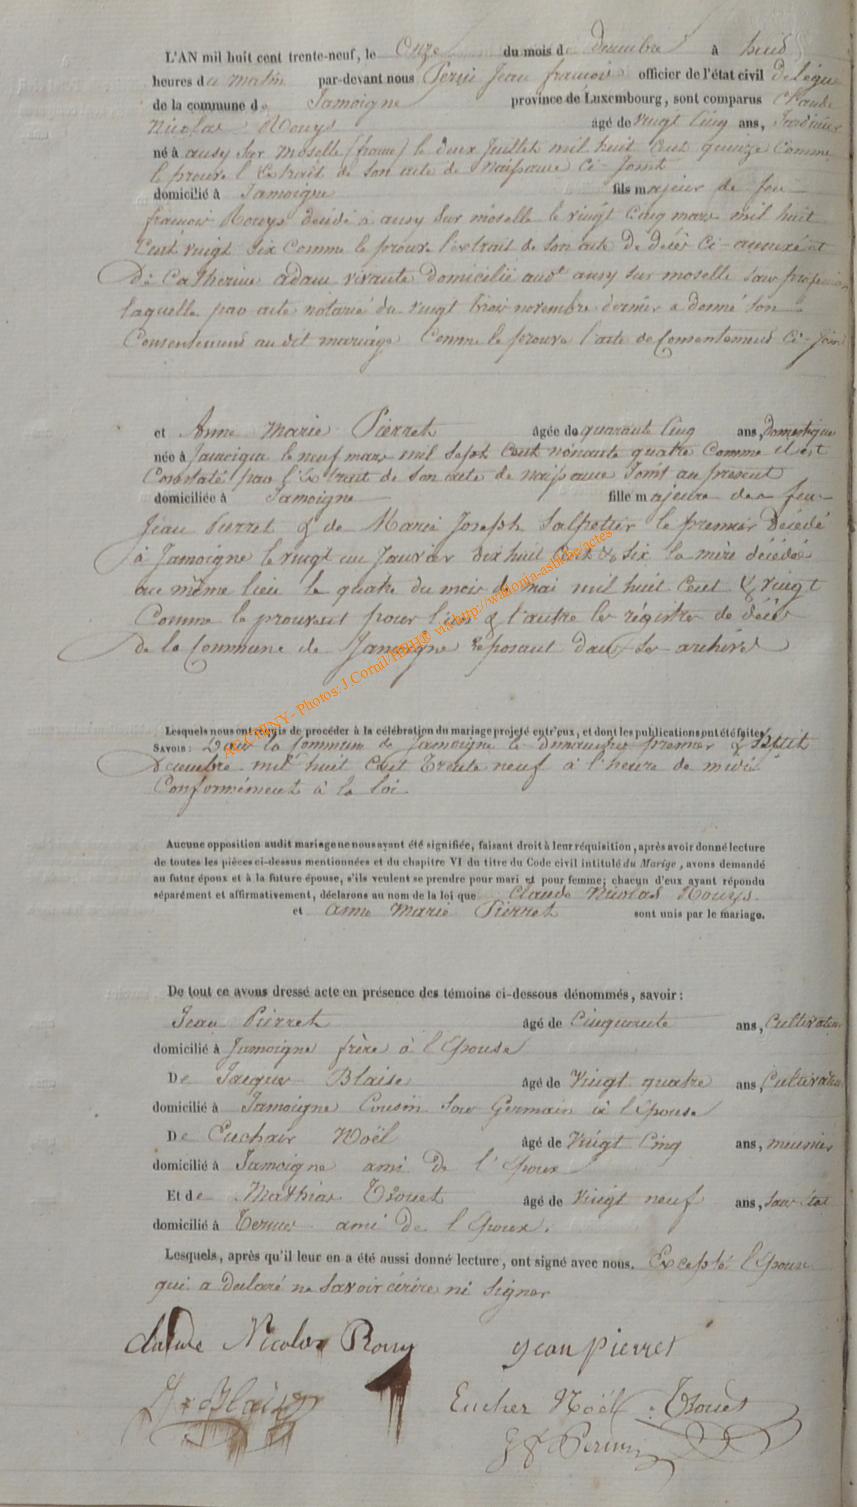 L'AN mil huit cent trente-neuf, le Onze du mois de décembre à huit
heures du matin par-devant nous Perin Jean françois officier de l'état civil délégué
de la commune de Jamoigne province de Luxembourg, sont comparus Claude
Nicolas Rouys âgé de vingt cinq ans, Jardinier
né à ansy sur moselle (france) le deux Juillet mil huit Cent quinze Comme
le prouve l'extrait de son acte de naissance Ci-Joint
domicilié à Jamoigne fils majeur de feu
francois Rouys décédé à ansy sur moselle le vingt cinq mars mil huit
Cent vingt six Comme le prouve l'extrait de son acte de décès Ci-annexé et
De Catherine adam vivante domicilié audt ansy sur moselle sans profession
laquelle par acte notarié du vingt trois novembre dernier a donné son
Consentement au dit mariage Comme le prouve l'acte de Consentement Ci-Joint
et Anne Marie Pierret âgée de quarante Cinq ans, Domestique
née à Jamoigne le neuf mars mil Sept Cent nonante quatre Comme il est
Constaté par l'Extrait de son acte de naissance Joint au présent
domiciliée à Jamoigne fille majeure de feu
Jean Pierret & de Marie Joseph Salpetier le premier Décédé
à Jamoigne le vingt un Janvier dix huit Cent & six la mère décédée
au même lieu le quatre du mois de mai mil huit Cent & vingt
Comme le prouvent pour l'un & l'autre les régistres de décès
de la Commune de Jamoigne reposant dans ses archives
Lesquels nous ont requis de procéder à la célébration du mariage projeté entr'eux, et dont les publications ont été faites
SAVOIR : Dans la Commune de Jamoigne le dimanches premier & huit
Décembre mil huit Cent Trente neuf à l'heure de midi
Conformément à la loi.
Aucune opposition audit mariage ne nous ayant été signifiée, faisant droit à leur réquisition, après avoir donné lecture
de toutes les pièces ci-dessus mentionnées et du chapitre VI du titre du Code civil intitulé du Marige, avons demandé
au futur époux et à la future épouse, s'ils veulent se prendre pour mari et pour femme; chacun d'eux ayant répondu
séparément et affirmativement, déclarons au nom de la loi que Claude Nicolas Rouys
et anne Marie Pierret sont unis par le mariage.
De tout ce avons dressé acte en présence des témoins ci-dessous dénommés, savoir :
Jean Pierret âgé de Cinquante ans, Cultivateur
domicilié à Jamoigne frère à l'Epouse
De Jacques Blaise âgé de Vingt quatre ans, Cultivateur
domicilié à Jamoigne Cousin sous Germain à l'épouse
De Euchair Noël âgé de Vingt Cinq ans, meunier
domicilié à Jamoigne ami de l'Epoux
Et de Mathias Thouet âgé de Vingt neuf ans, sans état
domicilié à Termes ami de l'Epoux.
Lesquels, après qu'il leur en a été aussi donné lecture, ont signé avec nous. Excepté l'Epouse
qui a déclaré ne savoir écrire ni signer
Claude Nicolas Rouy Jean pierret
J Blaise Eucher Noël Thouet
J F Perin
AC CHINY - Photos: J.Cornil/HBH® via http://wallonia-asbl.be/actes